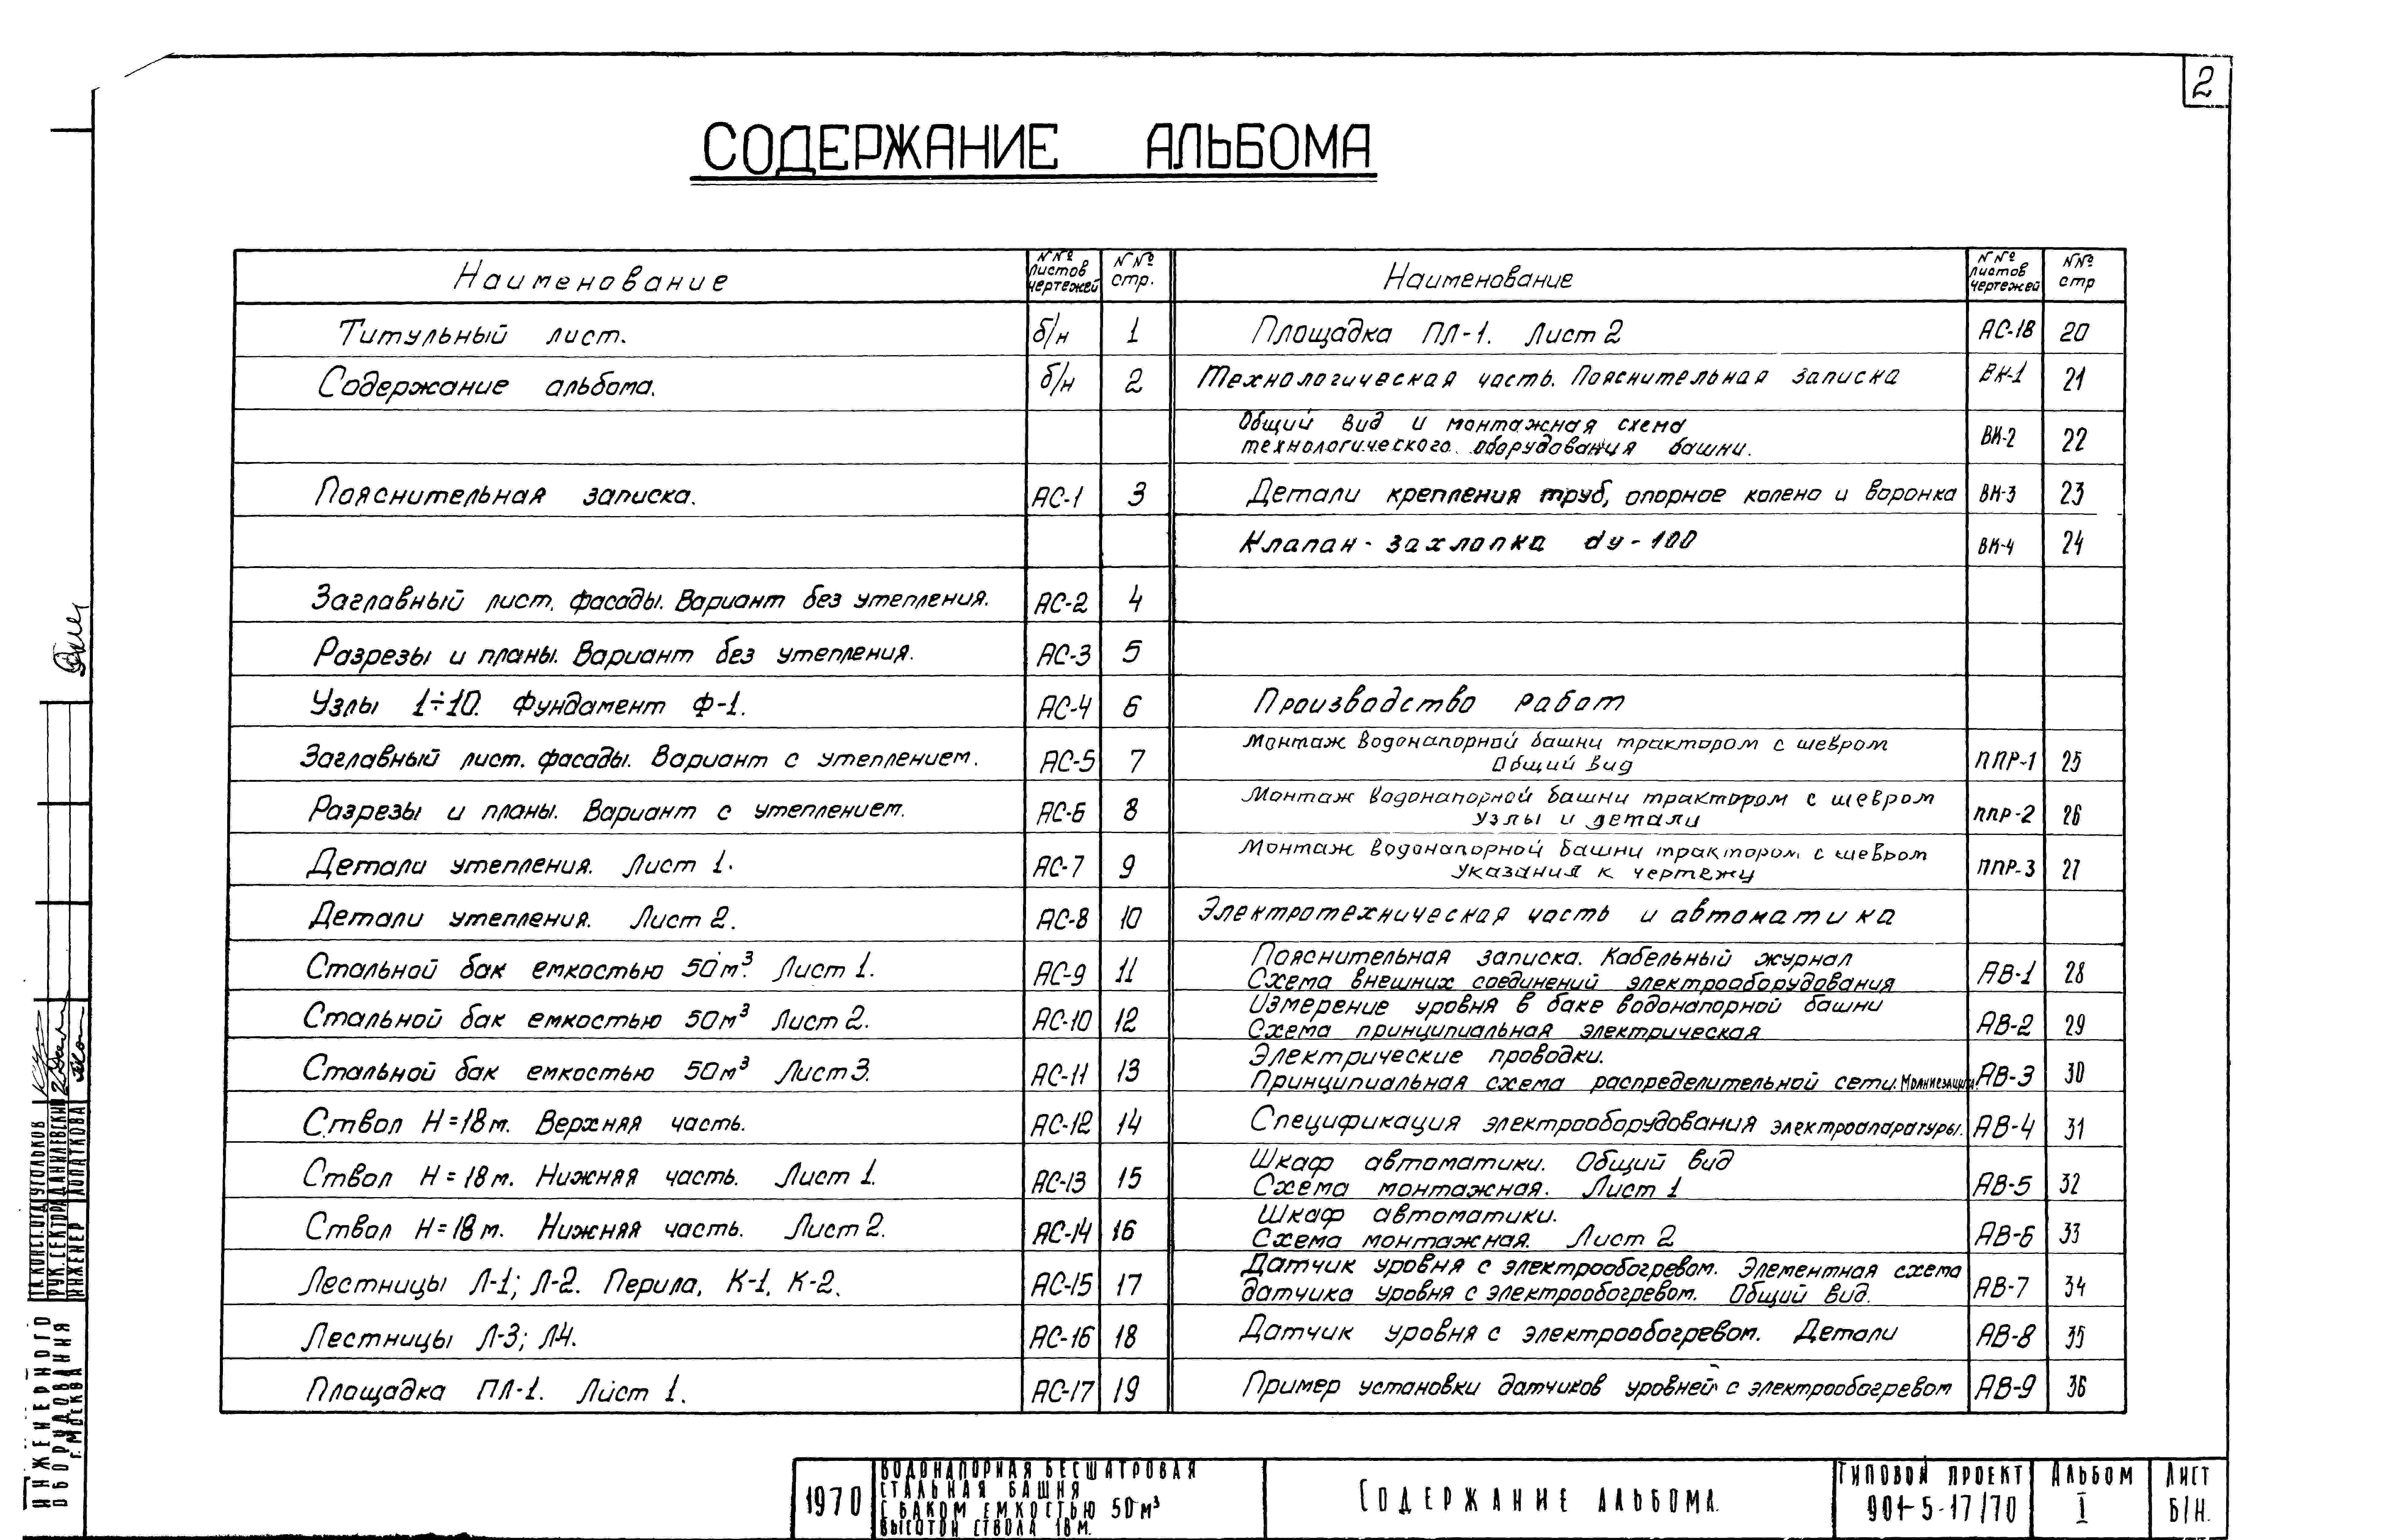 2
СОДЕРЖАНИЕ АЛЬБОМА
Наименование
N Nº листов чертежей
N Nº стр.
Титульный лист. б/н 1
Содержание альбома. б/н 2
Пояснительная записка. АС-1 3
Заглавный лист. фасады. Вариант без утепления. АС-2 4
Разрезы и планы. Вариант без утепления. АС-3 5
Узлы 1÷10. Фундамент Ф-1. АС-4 6
Заглавный лист. фасады. Вариант с утеплением. АС-5 7
Разрезы и планы. Вариант с утеплением. АС-6 8
Детали утепления. Лист 1. АС-7 9
Детали утепления. Лист 2. АС-8 10
Стальной бак емкостью 50м³. Лист 1. АС-9 11
Стальной бак емкостью 50м³ Лист 2. АС-10 12
Стальной бак емкостью 50м³ Лист 3. АС-11 13
Ствол Н=18м. Верхняя часть. АС-12 14
Ствол Н=18м. Нижняя часть. Лист 1. АС-13 15
Ствол Н=18м. Нижняя часть. Лист 2. АС-14 16
Лестницы Л-1; Л-2. Перила, К-1, К-2. АС-15 17
Лестницы Л-3; Л-4. АС-16 18
Площадка ПЛ-1. Лист 1. АС-17 19
Наименование
N Nº листов чертежей
N Nº стр
Площадка ПЛ-1. Лист 2 АС-18 20
Технологическая часть. Пояснительная записка ВК-1 21
Общий вид и монтажная схема
технологического оборудования башни. ВК-2 22
Детали крепления труб, опорное колено и воронка ВК-3 23
Клапан-захлопка dу-100 ВК-4 24
Производство работ
Монтаж водонапорной башни трактором с шевром
Общий вид ППР-1 25
Монтаж водонапорной башни трактором с шевром
Узлы и детали ППР-2 26
Монтаж водонапорной башни трактором с шевром
Указания к чертежу ППР-3 27
Электротехническая часть и автоматика
Пояснительная записка. Кабельный журнал
Схема внешних соединений электрооборудования АВ-1 28
Измерение уровня в баке водонапорной башни
Схема принципиальная электрическая АВ-2 29
Электрические проводки.
Принципиальная схема распределительной сети. Молниезащита. АВ-3 30
Спецификация электрооборудования электроаппаратуры. АВ-4 31
Шкаф автоматики. Общий вид
Схема монтажная. Лист 1 АВ-5 32
Шкаф автоматики.
Схема монтажная. Лист 2 АВ-6 33
Датчик уровня с электрообогревом. Элементная схема
датчика уровня с электрообогревом. Общий вид. АВ-7 34
Датчик уровня с электрообогревом. Детали АВ-8 35
Пример установки датчиков уровней с электрообогревом АВ-9 36
ГЛ.КОНСТ.ОТД УГОЛЬКОВ
РУК.СЕКТОРА ДАНИЛЕВСКИЙ
ИНЖЕНЕР ЛОПАТКОВА
ИНЖЕНЕРНОГО
ОБОРУДОВАНИЯ
Г. МОСКВА
1970
ВОДОНАПОРНАЯ БЕСШАТРОВАЯ
СТАЛЬНАЯ БАШНЯ
С БАКОМ ЕМКОСТЬЮ 50 м³
ВЫСОТОЙ СТВОЛА 18 М.
СОДЕРЖАНИЕ АЛЬБОМА.
ТИПОВОЙ ПРОЕКТ
901-5-17/70
АЛЬБОМ
I
ЛИСТ
Б/Н.